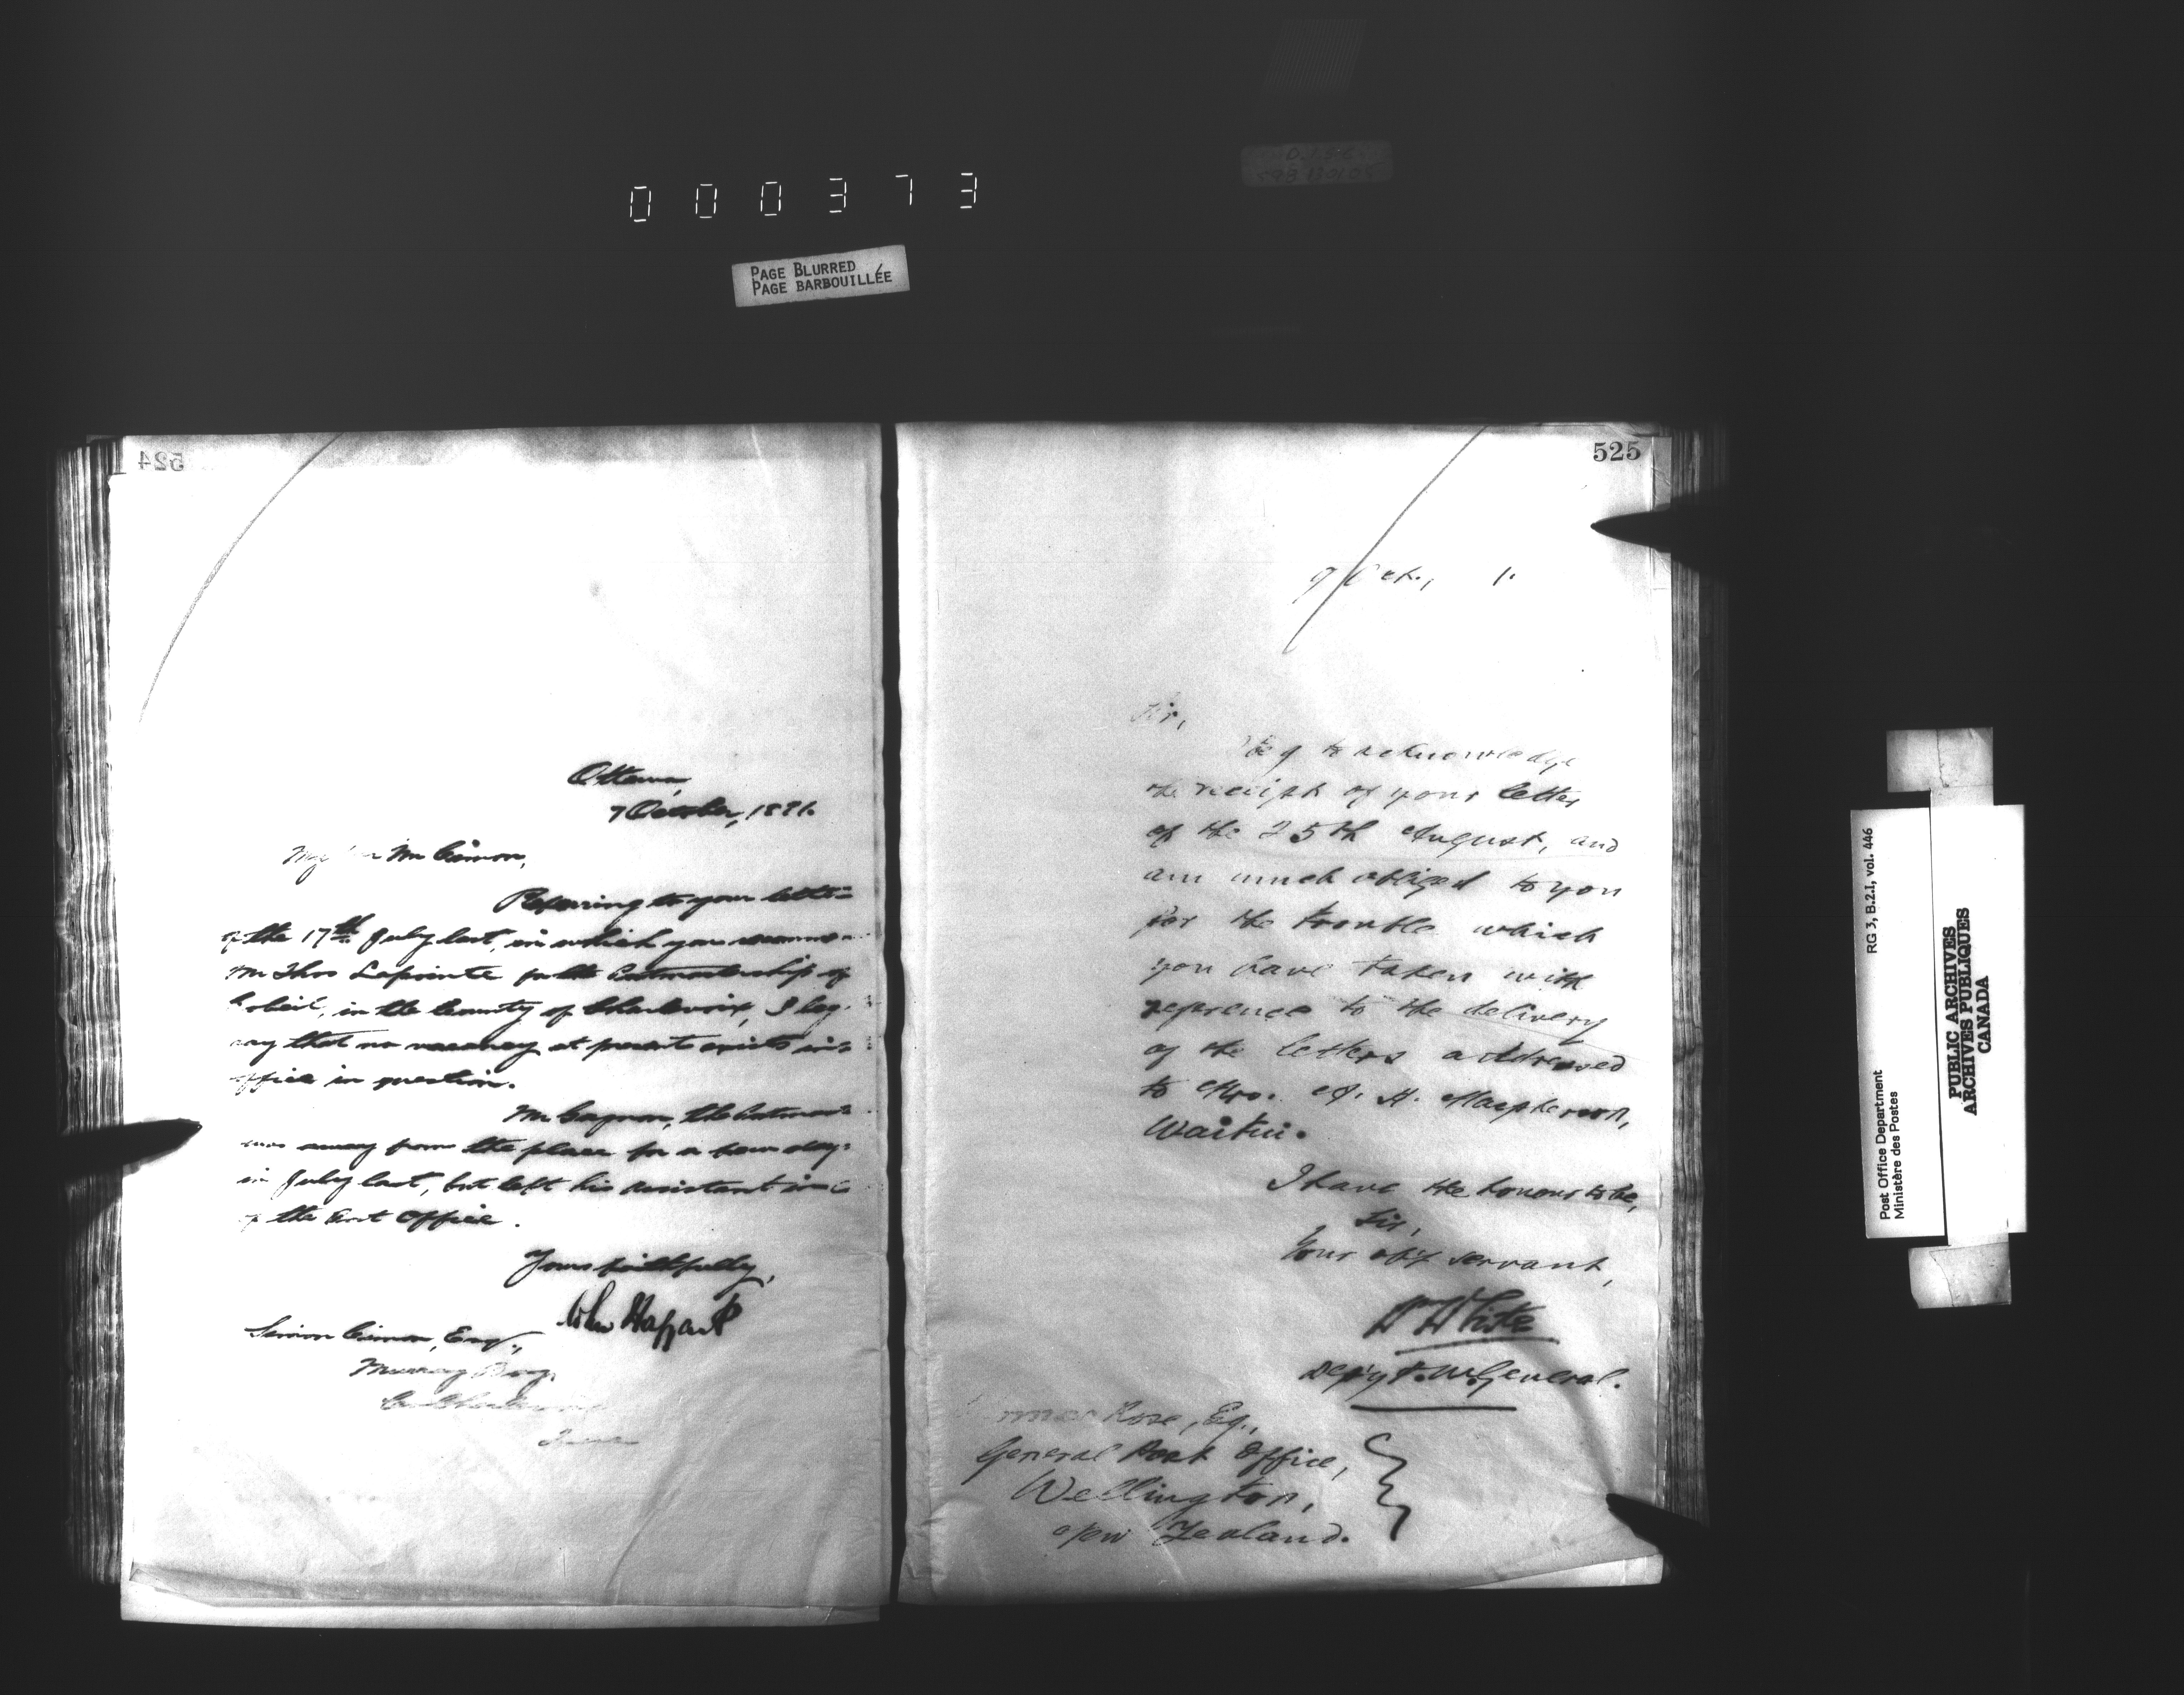 000373
PAGE BLURRED
PAGE BARBOUILLÉE
524
Ottawa,
7 October, 1891.
My Mr Cimon,
Referring to your letter
of the 17th July last, in which you
Mr Thos Lapointe for the Postmastership of
in the County of Charlevoix, I beg
say that no vacancy at present exists in
office in question.
Mr Gagnon, the
was away from the place for a few days
in July last, but left his assistant in
of the Post Office.
Yours faithfully,
John Haggart
Simon Cimon, Esq.,
Murray Bay,
525
7 Oct., 1.
Sir,
beg to acknowledge
the receipt of your letter
of the 25th August, and
am much obliged to you
for the trouble which
you have taken with
reference to the delivery
of the letters addressed
to Mrs. A. H. Macpherson,
I have the honour to be,
Sir,
Your obt servant,
W White
Dep'y P. M. General.
Rose, Esq.,
General Post Office,
Wellington,
New Zealand.
RG 3, B.2.1, vol. 446
Post Office Department
Ministère des Postes
PUBLIC ARCHIVES
ARCHIVES PUBLIQUES
CANADA